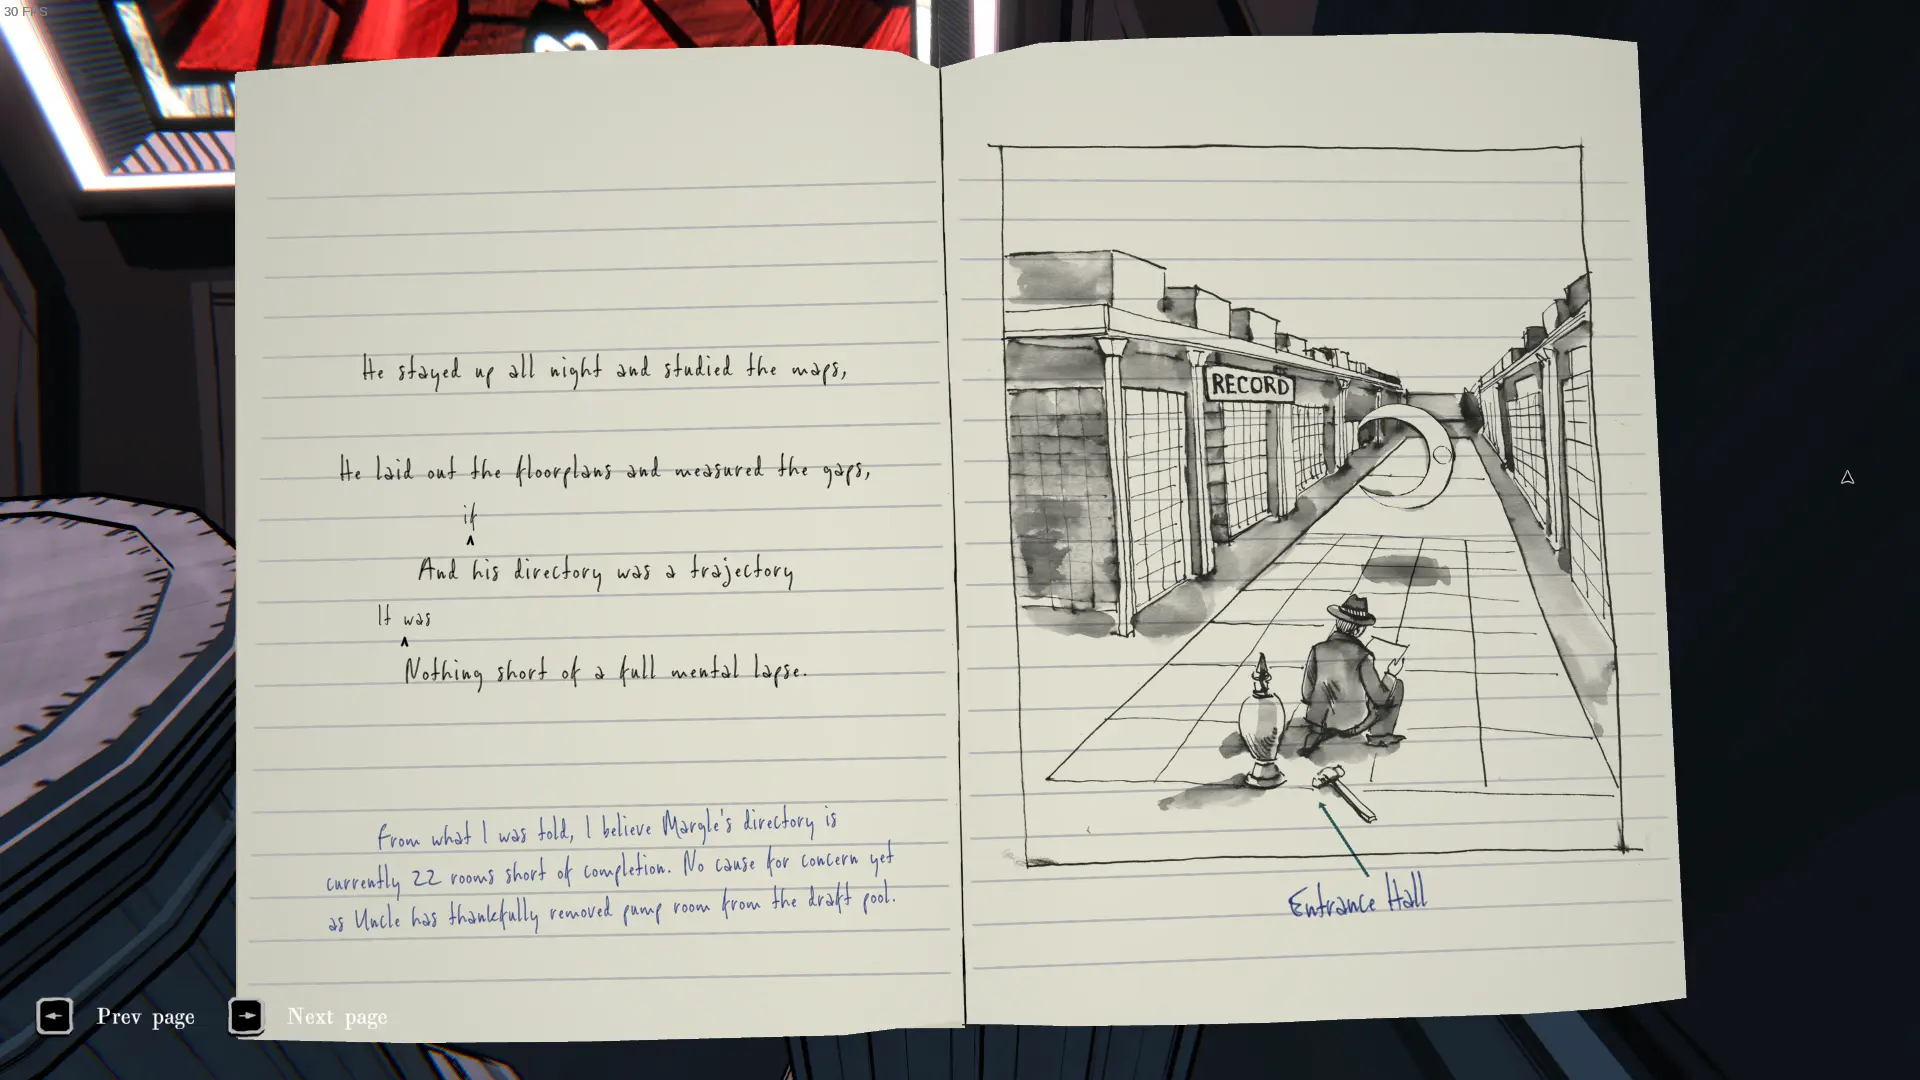 30 FPS
He stayed up all night and studied the maps,
He laid out the floorplans and measured the gaps,
if
^
And his directory was a trajectory
It was
^
Nothing short of a full mental lapse.
From what I was told, I believe Margle's directory is
currently 22 rooms short of completion. No cause for concern yet
as Uncle has thankfully removed pump room from the draft pool.
RECORD
Entrance Hall
Prev page
Next page